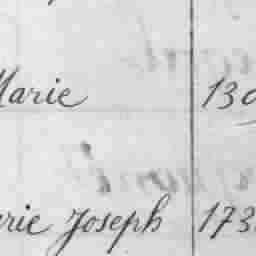 Marie 130
arie Joseph 173